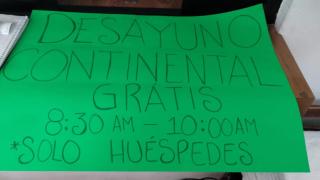 DESAYUNO
CONTINENTAL
GRATIS
8:30 AM – 10:00 AM
*SOLO HUÉSPEDES